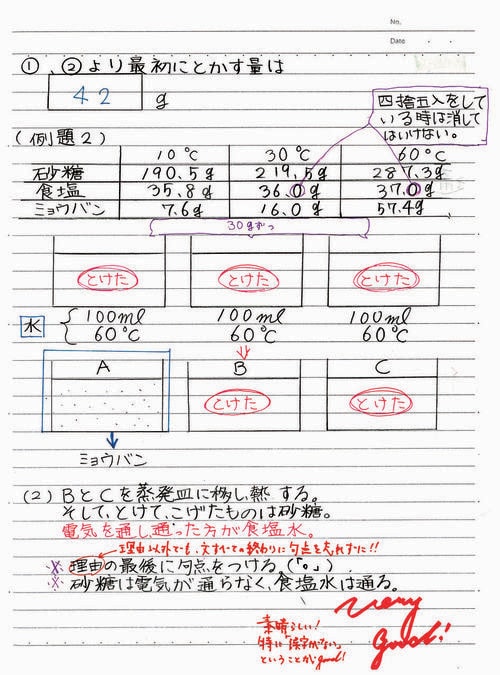 No.
Date
①、②より最初にとかす量は
42 g
四捨五入をして
いる時は消して
はいけない。
(例題2)
10℃ 30℃ 60℃
砂糖 190.5g 219.5g 287.3g
食塩 35.8g 36.0g 37.0g
ミョウバン 7.6g 16.0g 57.4g
30gずつ
とけた とけた とけた
水 100ml 100ml 100ml
60℃ 60℃ 60℃
A B C
とけた とけた
ミョウバン
(2) BとCを蒸発皿に移し、熱する。
そして、とけて、こげたものは砂糖。
電気を通し、通った方が食塩水。
理由以外でも、文すべての終わりに句点を忘れずに!!
※理由の最後に句点をつける。(「。」)
※砂糖は電気が通らなく、食塩水は通る。
素晴らしい!
特に「誤字がない」
ということがgood!
Very
Good!